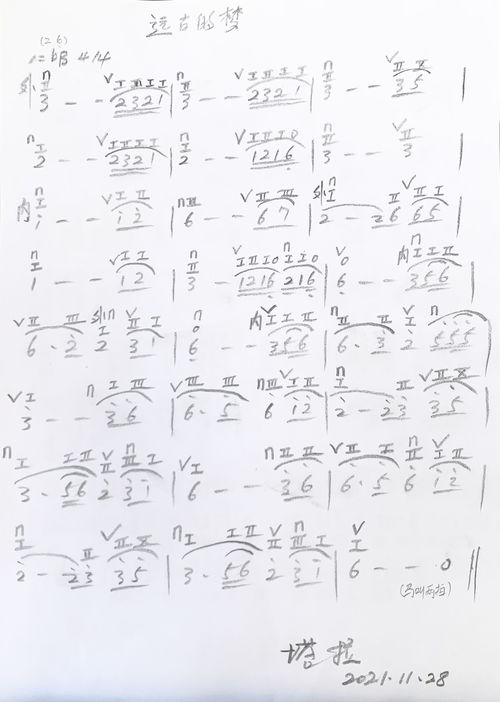 远古的梦
(26)
1=bB 4/4
外 3 - - 2321 | 3 - - 2321 | 3 - - 35 |
2 - - 2321 | 2 - - 1216 | 3 - - 3 |
内 1 - - 12 | 6 - - 67 | 外 2 - 26 65 |
1 - - 12 | 3 - 1216 216 | 6 - - 内 356 |
6· 2 外 2 31 | 6 - - 内 356 | 6· 3 2 555 |
3 - - 36 | 6· 5 6 12 | 2 - 23 35 |
3· 56 2 31 | 6 - - 36 | 6· 5 6 12 |
2 - 23 35 | 3· 56 2 31 | 6 - - 0 ‖
(马叫两拍)
塔拉
2021.11.28